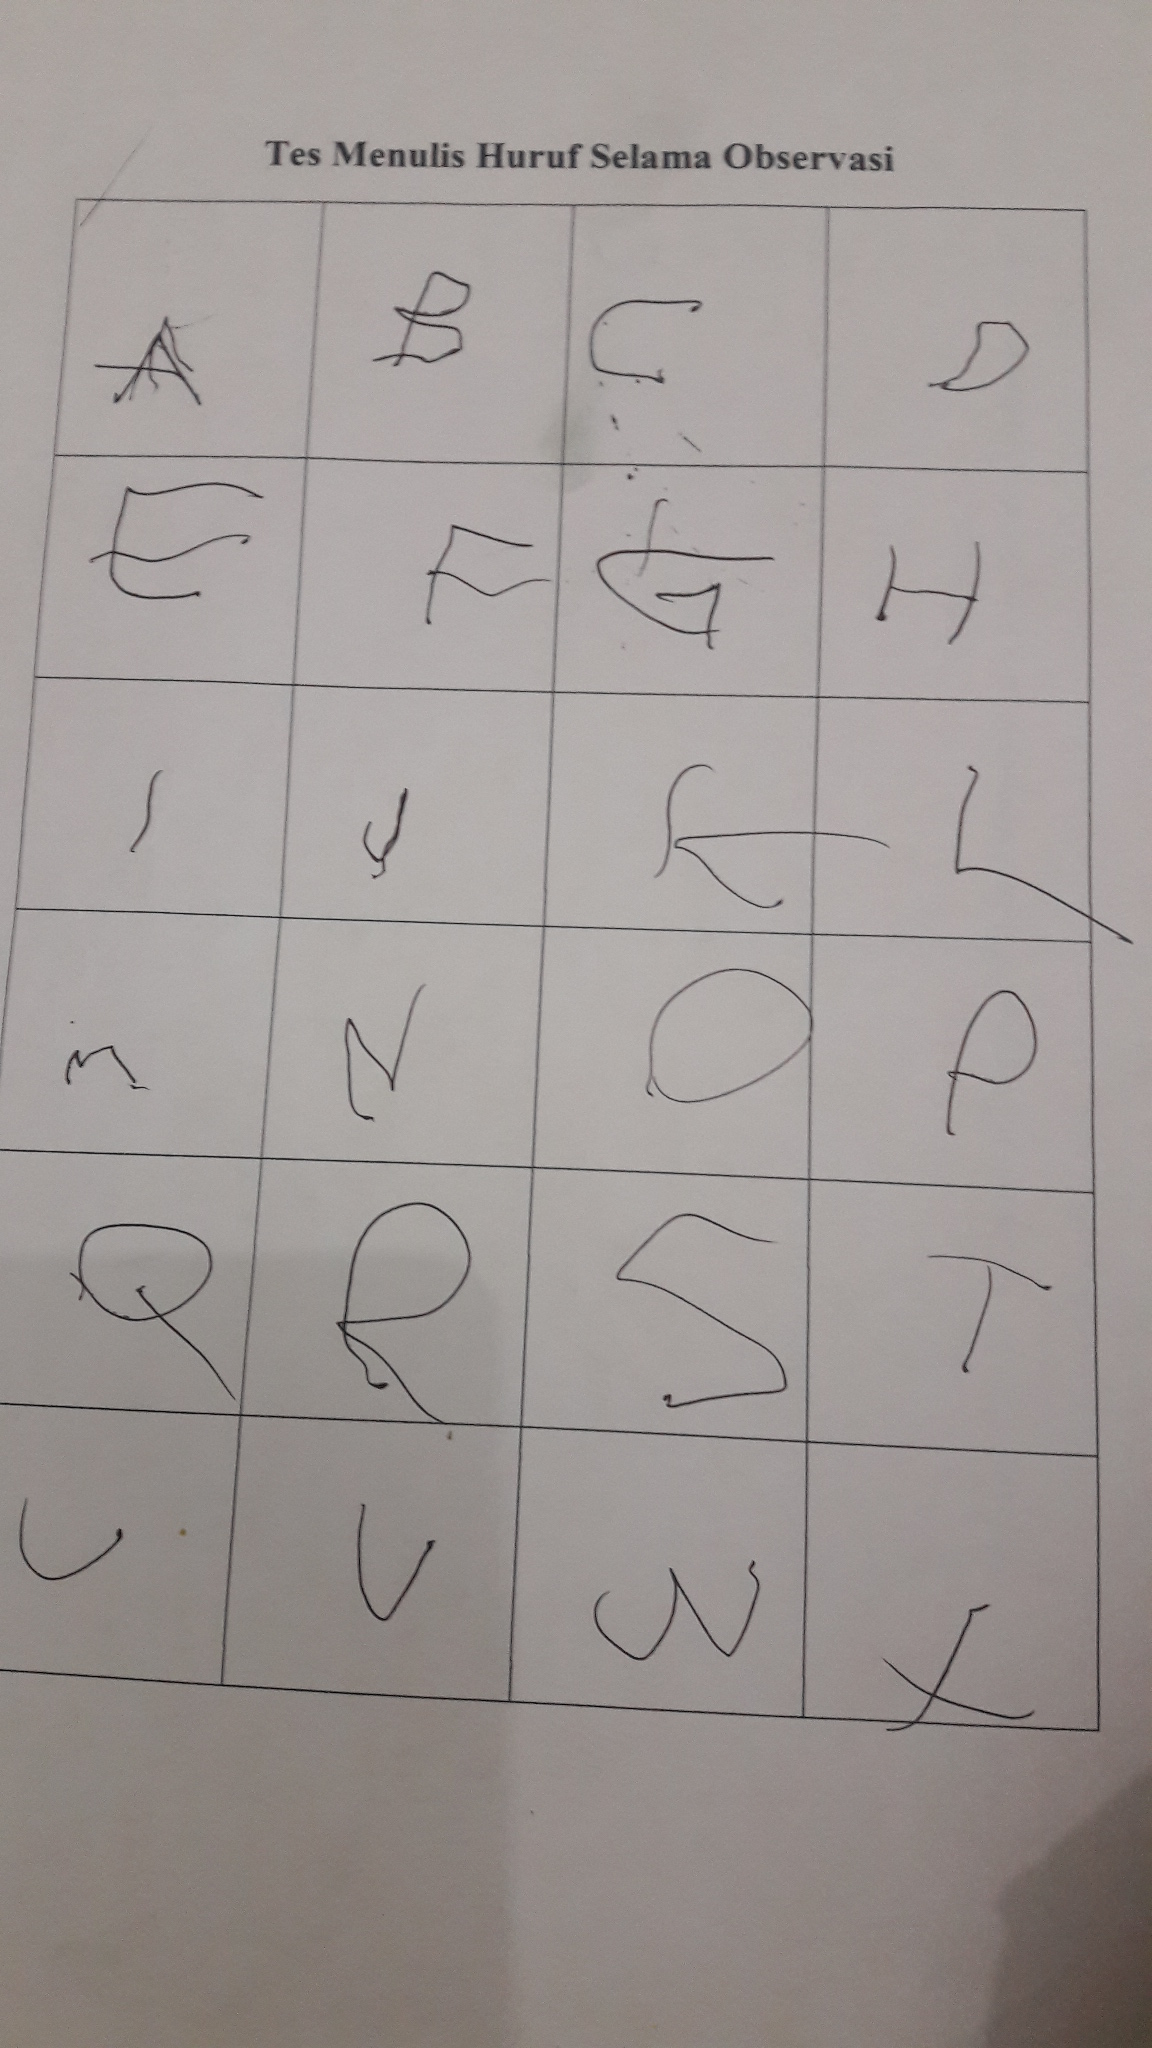 Tes Menulis Huruf Selama Observasi
A B C D
E F G H
I J K L
m N O P
Q R S T
U V W X